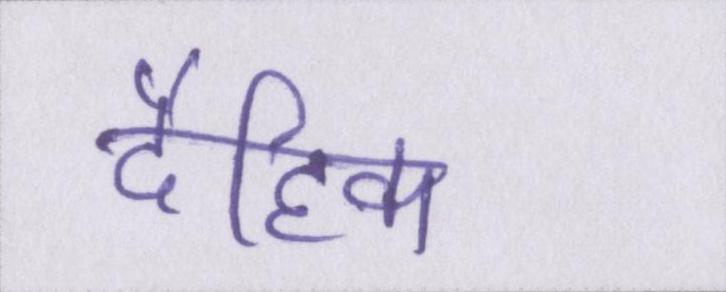 दैहिक